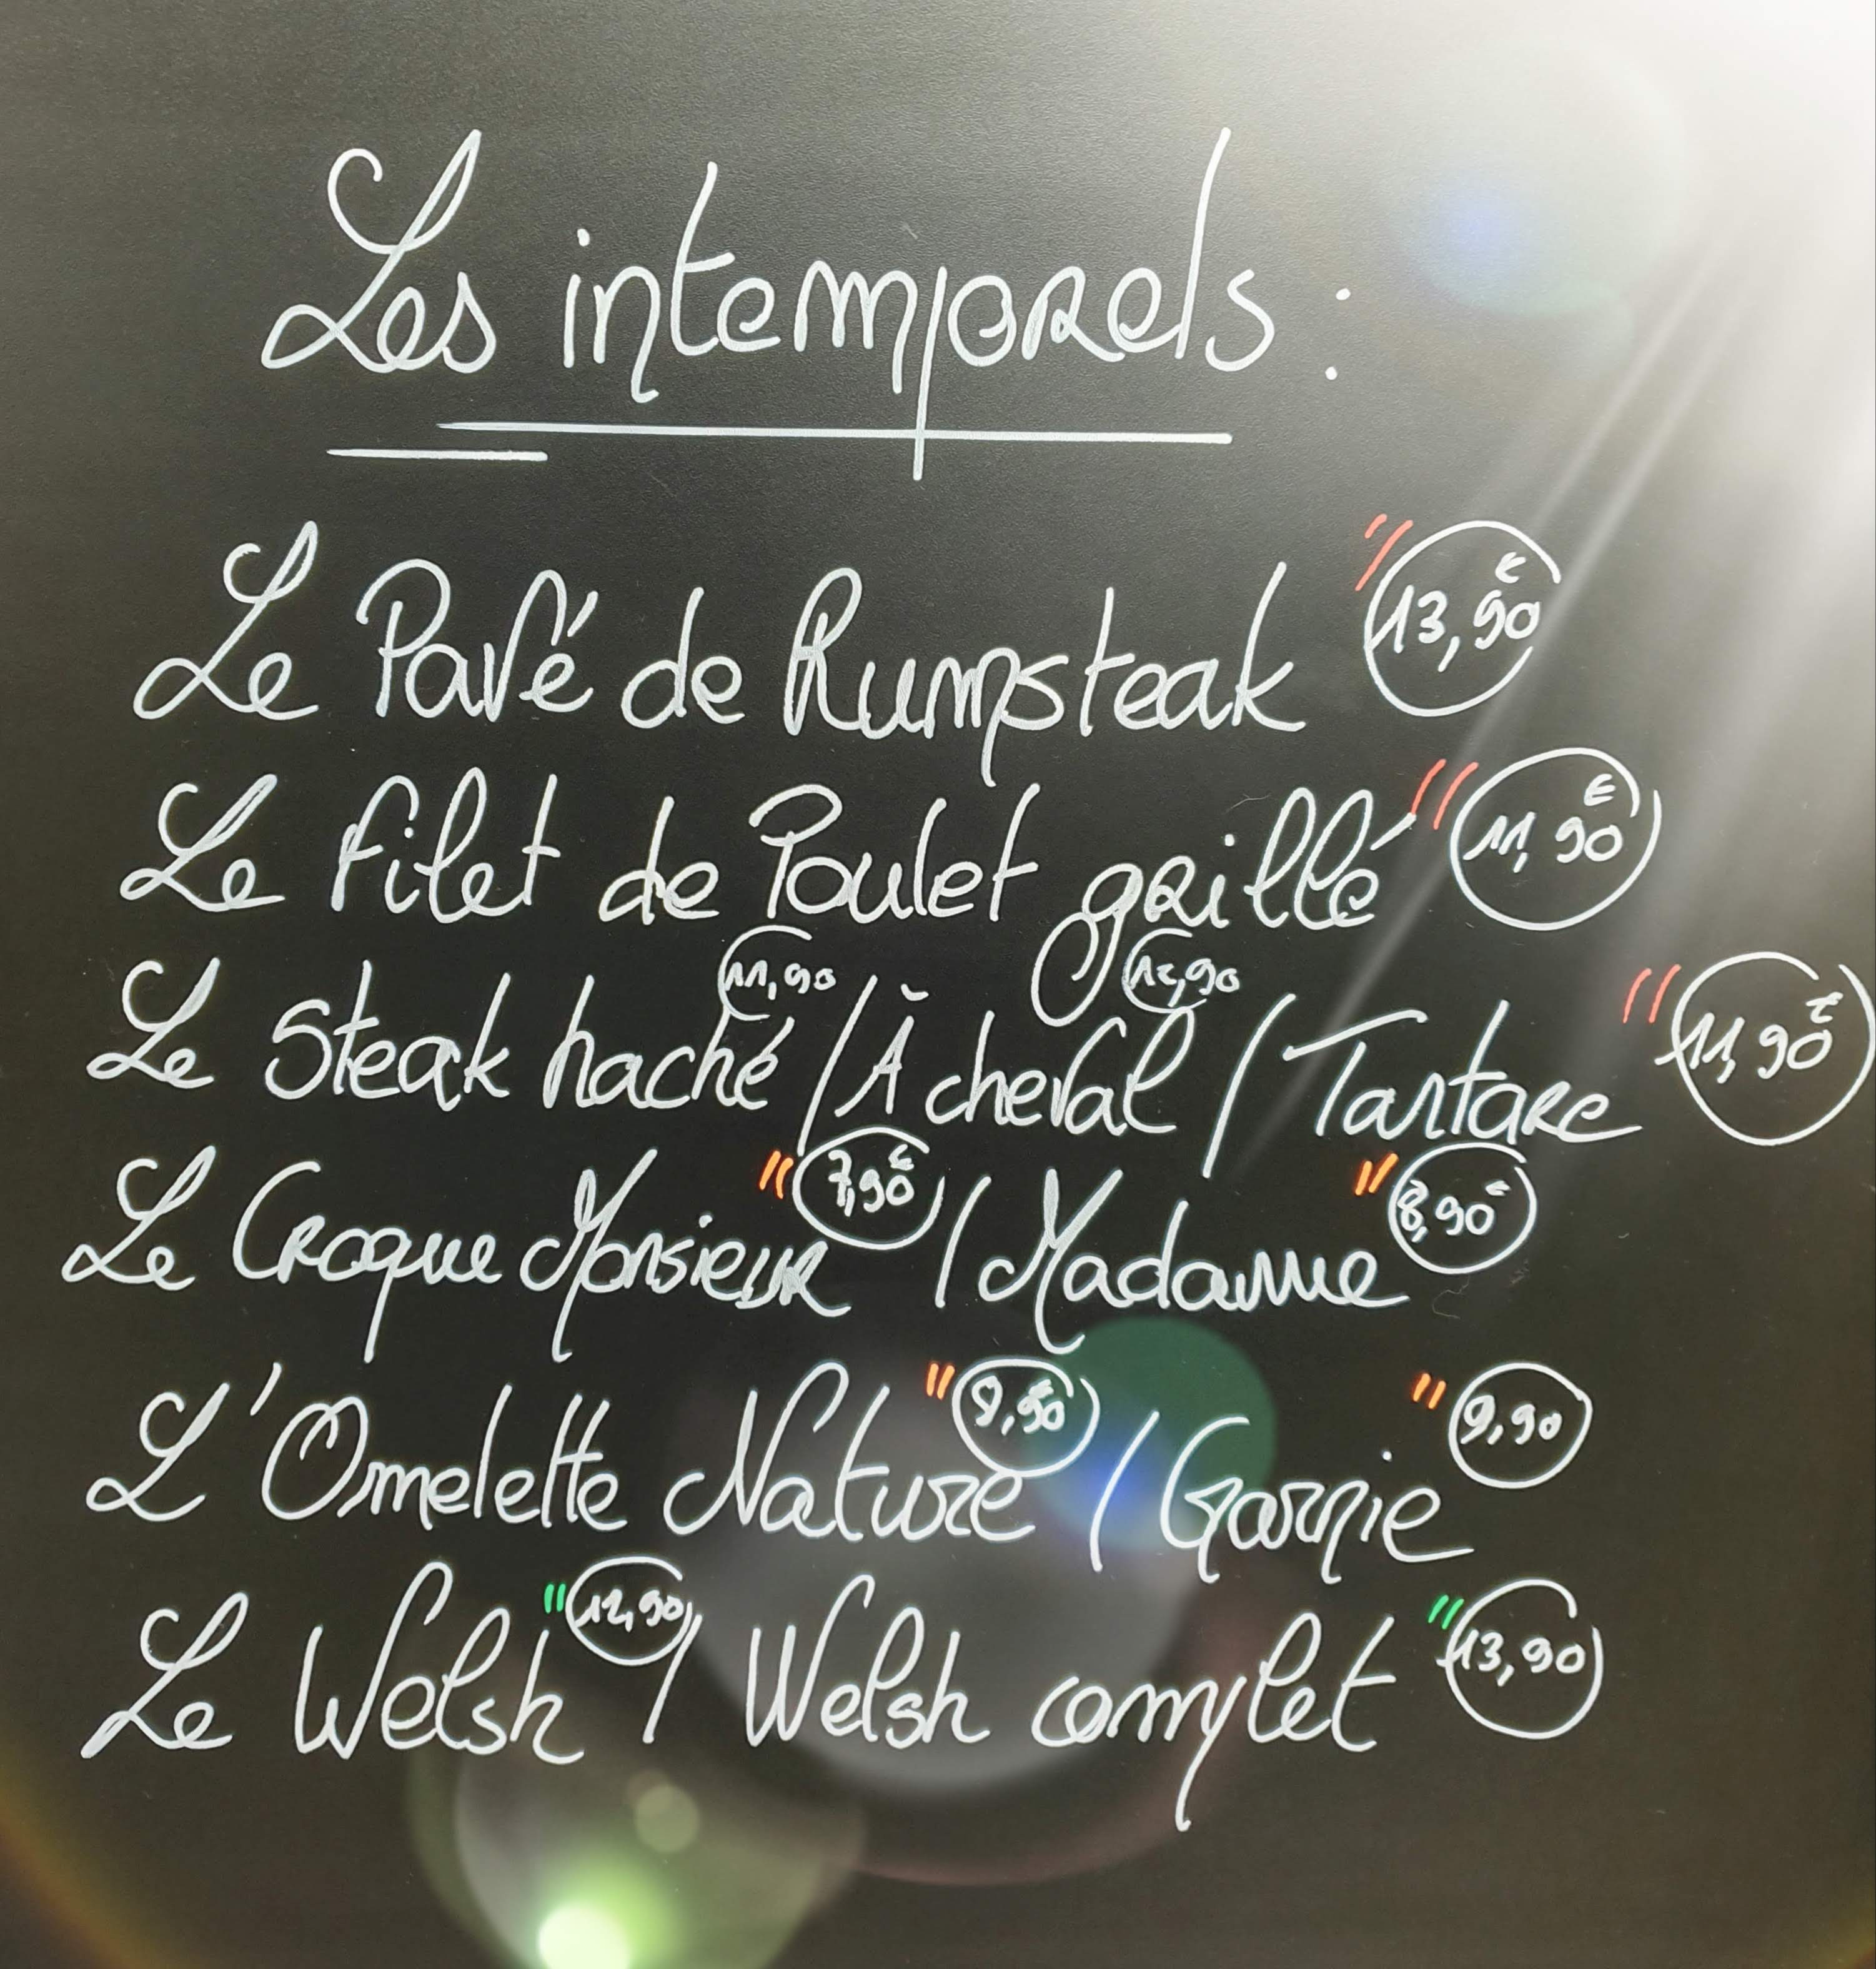 Les intemporels :
Le Pavé de Rumpsteak 13,90€
Le filet de Poulet grillé 11,90€
Le Steak haché 11,90 / À cheval 12,90 / Tartare 11,90€
Le Croque Monsieur 7,90€ / Madame 8,90€
L'Omelette Nature / Garnie 9,90
Le Welsh 12,90 / Welsh complet 13,90